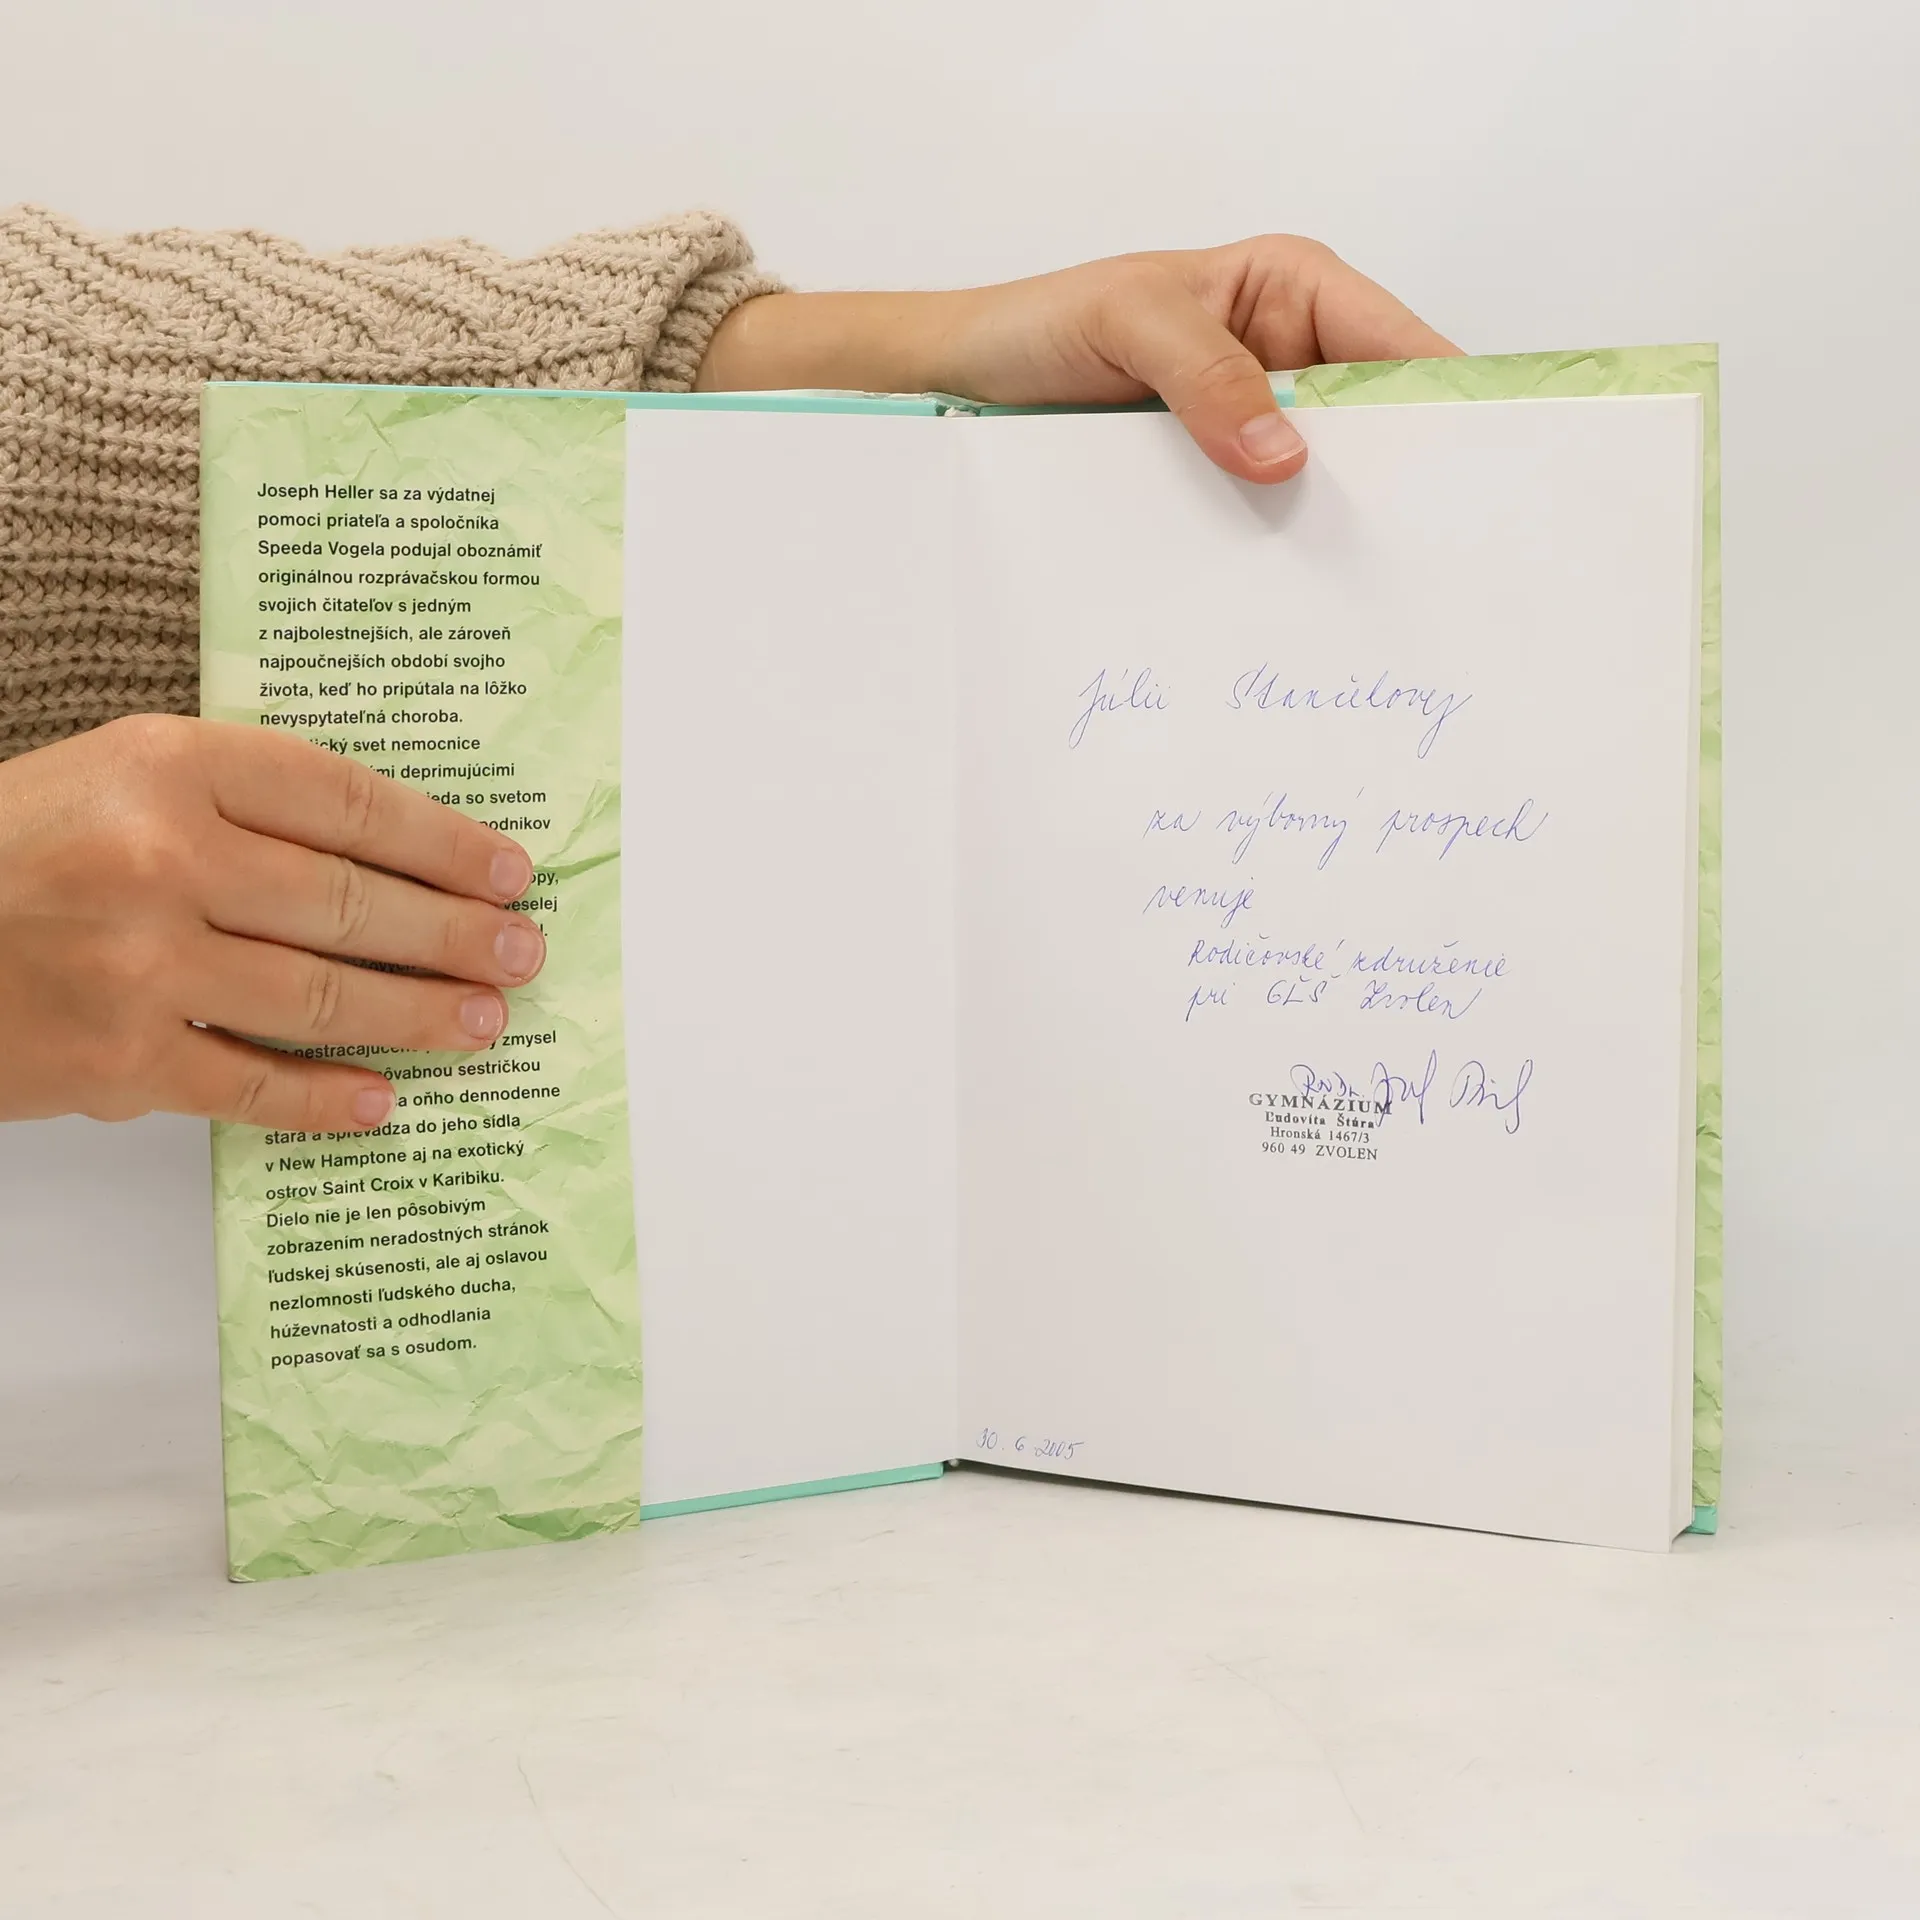 Joseph Heller sa za výdatnej
pomoci priateľa a spoločníka
Speeda Vogela podujal oboznámiť
originálnou rozprávačskou formou
svojich čitateľov s jedným
z najbolestnejších, ale zároveň
najpoučnejších období svojho
života, keď ho pripútala na lôžko
nevyspytateľná choroba.
svet nemocnice
deprimujúcimi
so svetom
podnikov
veselej
zmysel
sestričkou
oňho dennodenne
stará a sprevádza do jeho sídla
v New Hamptone aj na exotický
ostrov Saint Croix v Karibiku.
Dielo nie je len pôsobivým
zobrazením neradostných stránok
ľudskej skúsenosti, ale aj oslavou
nezlomnosti ľudského ducha,
húževnatosti a odhodlania
popasovať sa s osudom.
Júlii Stančekovej
za výborný prospech
venuje
Rodičovské združenie
pri GĽŠ Zvolen
RNDr.
GYMNÁZIUM
Ľudovíta Štúra
Hronská 1467/3
960 49 ZVOLEN
30. 6. 2005